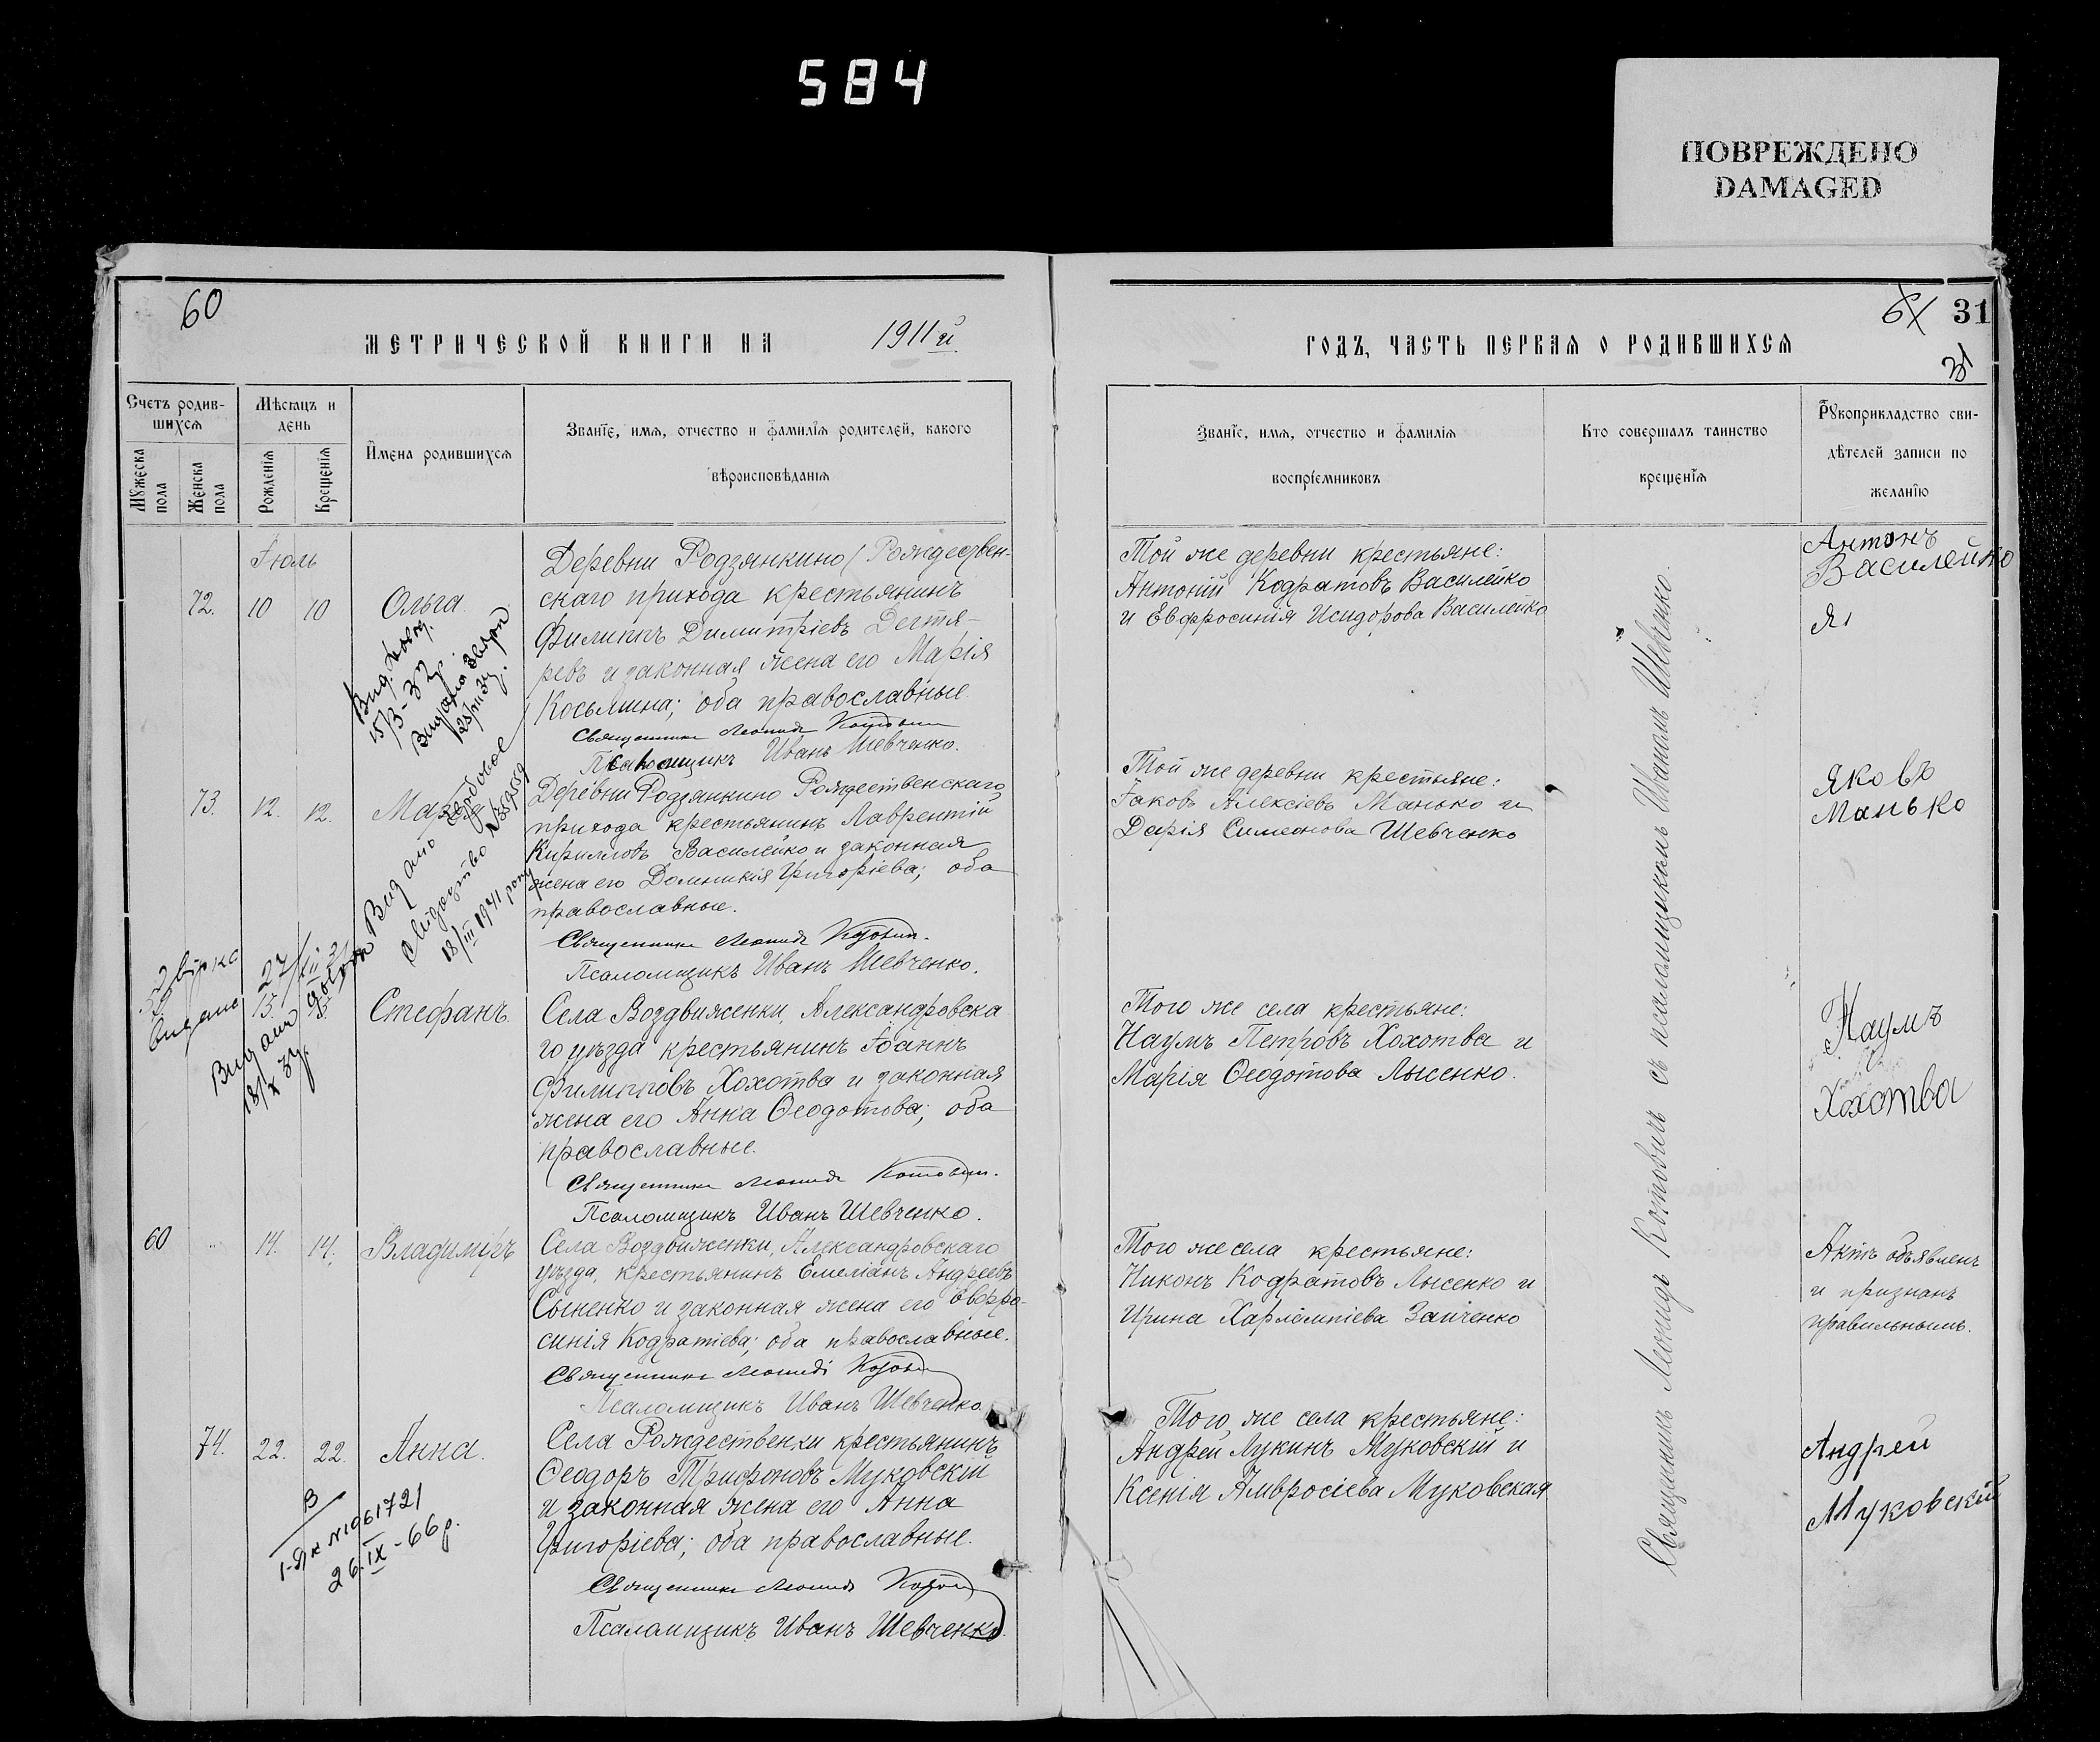 584
ПОВРЕЖДЕНО
DAMAGED
60
МЕТРИЧЕСКОЙ КНИГИ НА 1911й
Счетъ родив-
шихся
Мѣсяцъ и
день
Имена родившихся
Званіе, имя, отчество и фамилія родителей, какого
вѣроисповѣданія
Мужеска
пола
Женска
пола
Рожденія
Крещенія
Іюль
72. 10 10 Ольга.
Деревни Родзянкино (Рождествен-
скаго прихода крестьянинъ
Филиппъ Димитріевъ Дегтя-
ревъ и законная жена его Марія
Косьмина; оба православные.
Священникъ Леонидъ Котовичъ
Псаломщикъ Иванъ Шевченко.
15/3-32
73. 12. 12.
Деревни Родзянкино Рождественскаго
прихода крестьянинъ Лаврентій
Кирилловъ Василейко и законная
жена его Домникія Григоріева; оба
православные.
Священникъ Леонидъ Котовичъ.
Псаломщикъ Иванъ Шевченко.
Видано
свідоцтво
18/III 1941 року
видано
15. Стефанъ.
Видано
18/X 34
Села Воздвиженки, Александровска
го уѣзда крестьянинъ Іоаннъ
Филипповъ Хохотва и законная
жена его Анна Ѳеодотова; оба
православные.
Священникъ Леонидъ Котовичъ.
Псаломщикъ Иванъ Шевченко.
60 " 14. 14. Владиміръ
Села Воздвиженки, Александровскаго
уѣзда, крестьянинъ Емеліанъ Андреевъ
Сыненко и законная жена его Евфро-
синія Кодратіева; оба православные.
Священникъ Леонидъ Котовичъ
Псаломщикъ Иванъ Шевченко
74. 22. 22. Анна.
Села Рождественки крестьянинъ
Ѳеодоръ Трифоновъ Муковскій
и законная жена его Анна
Григоріева; оба православные.
Священникъ Леонидъ Котовичъ
Псаломщикъ Иванъ Шевченко.
№ 1961721
26.IX-66р.
61 31
31
ГОДЪ, ЧАСТЬ ПЕРВАЯ О РОДИВШИХСЯ
Званіе, имя, отчество и фамилія
воспріемниковъ
Кто совершалъ таинство
крещенія
Рукоприкладство сви-
дѣтелей записи по
желанію
Той же деревни крестьяне:
Антоній Кодратовъ Василейко
и Евфросинія Исидорова Василейко
Антонъ
Василейко
Той же деревни крестьяне:
Іаковъ Алексіевъ Манько и
Дарія Симеонова Шевченко
Яковъ
Манько
Того же села крестьяне:
Наумъ Петровъ Хохотва и
Марія Ѳеодотова Лысенко.
Наумъ
Хохотва
Того же села крестьяне:
Никонъ Кодратовъ Лысенко и
Ирина Харлампіева Заиченко
Актъ объявленъ
и признанъ
правильнымъ.
Того же села крестьяне:
Андрей Лукинъ Муковскій и
Ксенія Амвросіева Муковская
Андрей
Муковскій
Священникъ Леонидъ Котовичъ съ псаломщикомъ Иваномъ Шевченко.